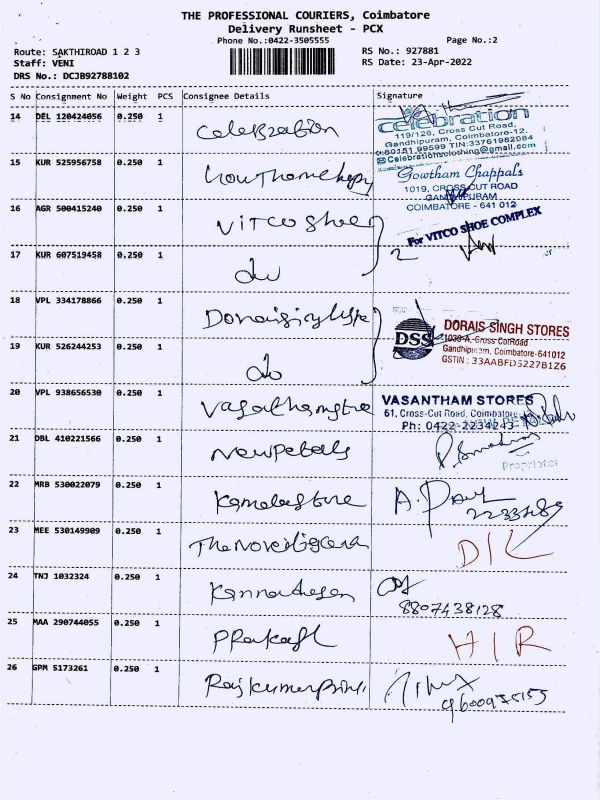 THE PROFESSIONAL COURIERS, Coimbatore
Delivery Runsheet - PCX
Phone No.:0422-3505555 Page No.:2
Route: SAKTHIROAD 1 2 3 RS No.: 927881
Staff: VENI RS Date: 23-Apr-2022
DRS No.: DCJB92788102
S No Consignment No Weight PCS Consignee Details Signature
14 DEL 120424056 0.250 1 Celebration
celebration
119/126, Cross Cut Road,
Gandhipuram, Coimbatore-12.
99599 TIN:33761982984
Celebrationsclothing@gmail.com
15 KUR 525956758 0.250 1
Gowtham Chappals
1019, CROSS CUT ROAD
GANDHIPURAM
COIMBATORE - 641 012
16 AGR 500415240 0.250 1 VITCO Shoe
For VITCO SHOE COMPLEX
17 KUR 607519458 0.250 1 do 2
18 VPL 334178866 0.250 1
DSS
DORAIS SINGH STORES
1039-A, Cross CutRoad
Gandhipuram, Coimbatore-641012
GSTIN : 33AABFD5227B1Z6
19 KUR 526244253 0.250 1 do
20 VPL 938656530 0.250 1
VASANTHAM STORES
61, Cross-Cut Road, Coimbatore
Ph: 0422-2234243
21 DBL 410221566 0.250 1 Newpetals
Proprietor
22 MRB 530022079 0.250 1 Kamalastore
23 MEE 530149909 0.250 1 D/L
24 TNJ 1032324 0.250 1
8807438128
25 MAA 290744055 0.250 1 PRakash H/R
26 GPM 5173261 0.250 1